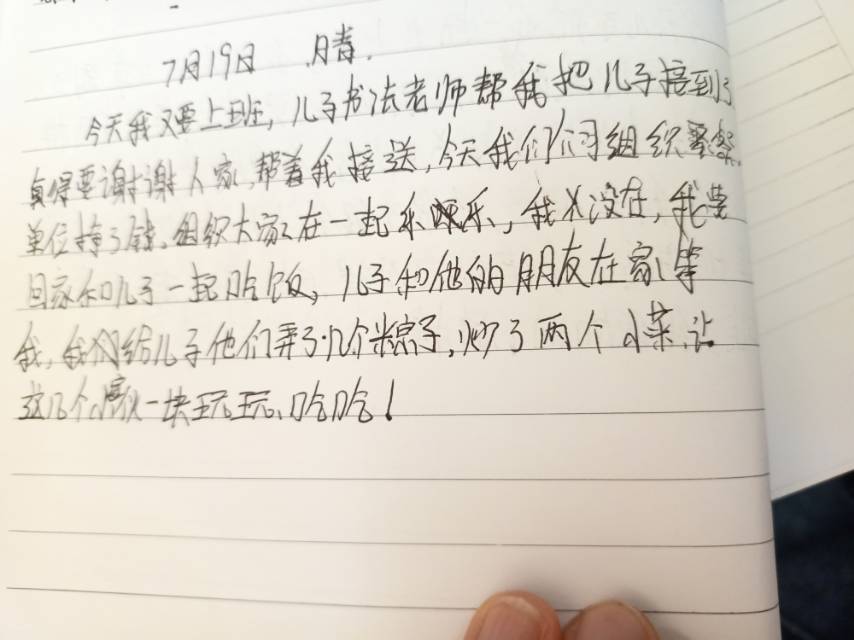 7月19日 晴.
今天我又要上班,儿子书法老师帮我把儿子接到了
真得要谢谢人家,帮着我接送,今天我们们司组织聚餐.
单位持了钱.组织大家在一起乐呵乐,我又没在,我要
回家和儿子一起吃饭,儿子和他的朋友在家等
我,我给儿子他们弄了几个粽子,炒了两个小菜,让
这几个小家伙一块玩玩、吃吃!